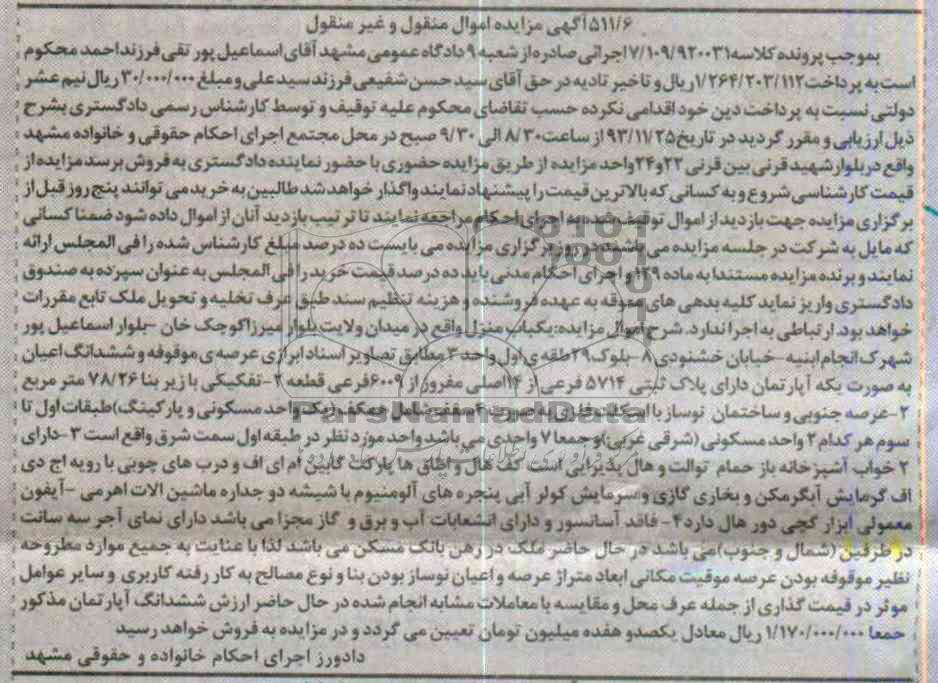 ۵۱۱/۶آگهی مزایده اموال منقول و غیر منقول
بموجب پرونده کلاسه۷/۱۰۹/۹۲۰۰۳۱اجرائی صادره از شعبه ۹ دادگاه عمومی مشهد آقای اسماعیل پور تقی فرزند احمد محکوم
است به پرداخت۱/۲۶۴/۲۰۳/۱۱۲ریال و تاخیر تادیه در حق آقای سید حسن شفیعی فرزند سید علی و مبلغ ۳۰/۰۰۰/۰۰۰ ریال نیم عشر
دولتی نسبت به پرداخت دین خود اقدامی نکرده حسب تقاضای محکوم علیه توقیف و توسط کارشناس رسمی دادگستری بشرح
ذیل ارزیابی و مقرر گردید در تاریخ۹۳/۱۱/۲۵ از ساعت۸/۳۰ الی ۹/۳۰ صبح در محل مجتمع اجرای احکام حقوقی و خانواده مشهد
واقع در بلوار شهید قرنی بین قرنی ۲۲و۲۴واحد مزایده از طریق مزایده حضوری با حضور نماینده دادگستری به فروش برسد مزایده از
قیمت کارشناسی شروع و به کسانی که بالاترین قیمت را پیشنهاد نمایند واگذار خواهد شد طالبین به خرید می توانند پنج روز قبل از
برگزاری مزایده جهت بازدید از اموال توقیف شده به اجرای احکام مراجعه نمایند تا ترتیب بازدید آنان از اموال داده شود ضمنا کسانی
که مایل به شرکت در جلسه مزایده می باشند در روز برگزاری مزایده می بایست ده درصد مبلغ کارشناس شده را فی المجلس ارائه
نمایند و برنده مزایده مستندا به ماده ۱۲۹ و اجرای احکام مدنی باید ده درصد قیمت خرید را فی المجلس به عنوان سپرده به صندوق
دادگستری واریز نماید کلیه بدهی های معوقه به عهده فروشنده و هزینه تنظیم سند طبق عرف تخلیه و تحویل ملک تابع مقررات
خواهد بود. ارتباطی به اجرا ندارد. شرح اموال مزایده:یکباب منزل واقع در میدان ولایت بلوار میرزاکوچک خان -بلوار اسماعیل پور
شهرک انجام ابنیه-خیابان خشنودی ۸-بلوک ۲۹طقه ی اول واحد ۳ مطابق تصاویر اسناد ابرازی عرصه ی موقوفه و ششدانگ اعیان
به صورت یکه آپارتمان دارای پلاک ثبتی ۵۷۱۴ فرعی از ۱۴اصلی مفروز از ۶۰۰۹فرعی قطعه ۲-تفکیکی با زیر بنا ۷۸/۲۶ متر مربع
۲-عرصه جنوبی و ساختمان نوساز با اسکلت فلزی به صورت ۴ سقف شامل همکف(یک واحد مسکونی و پارکینگ)طبقات اول تا
سوم هر کدام ۲ واحد مسکونی (شرقی غربی)و جمعا ۷ واحدی می باشد واحد مورد نظر در طبقه اول سمت شرق واقع است ۳-دارای
۲ خواب آشپزخانه باز حمام توالت و هال پذیرایی است کف هال و اطاق ها پارکت کابین ام ای اف و درب های چوبی با رویه اچ دی
اف گرمایش آبگرمکن و بخاری گازی و سرمایش کولر آبی پنجره های آلومنیوم با شیشه دو جداره ماشین الات اهرمی -آیفون
معمولی ابزار گچی دور هال دارد۴- فاقد آسانسور و دارای انشعابات آب و برق و گاز مجزا می باشد دارای نمای آجر سه سانت
در طرفین (شمال و جنوب)می باشد در حال حاضر ملک در رهن بانک مسکن می باشد لذا با عنایت به جمیع موارد مطروحه
نظیر موقوفه بودن عرصه موقیت مکانی ابعاد متراژ عرصه و اعیان نوساز بودن بنا و نوع مصالح به کار رفته کاربری و سایر عوامل
موثر در قیمت گذاری از جمله عرف محل و مقایسه با معاملات مشابه انجام شده در حال حاضر ارزش ششدانگ آپارتمان مذکور
جمعا ۱/۱۷۰/۰۰۰/۰۰۰ ریال معادل یکصدو هفده میلیون تومان تعیین می گردد و در مزایده به فروش خواهد رسید
دادورز اجرای احکام خانواده و حقوقی مشهد
ParsNamadData